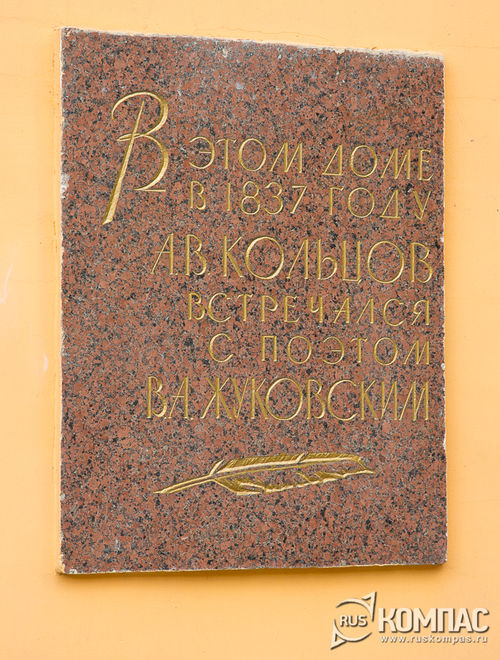 В ЭТОМ ДОМЕ
В 1837 ГОДУ
А.В КОЛЬЦОВ
ВСТРЕЧАЛСЯ
С ПОЭТОМ
В.А.ЖУКОВСКИМ
RUS КОМПАС
www.ruskompas.ru